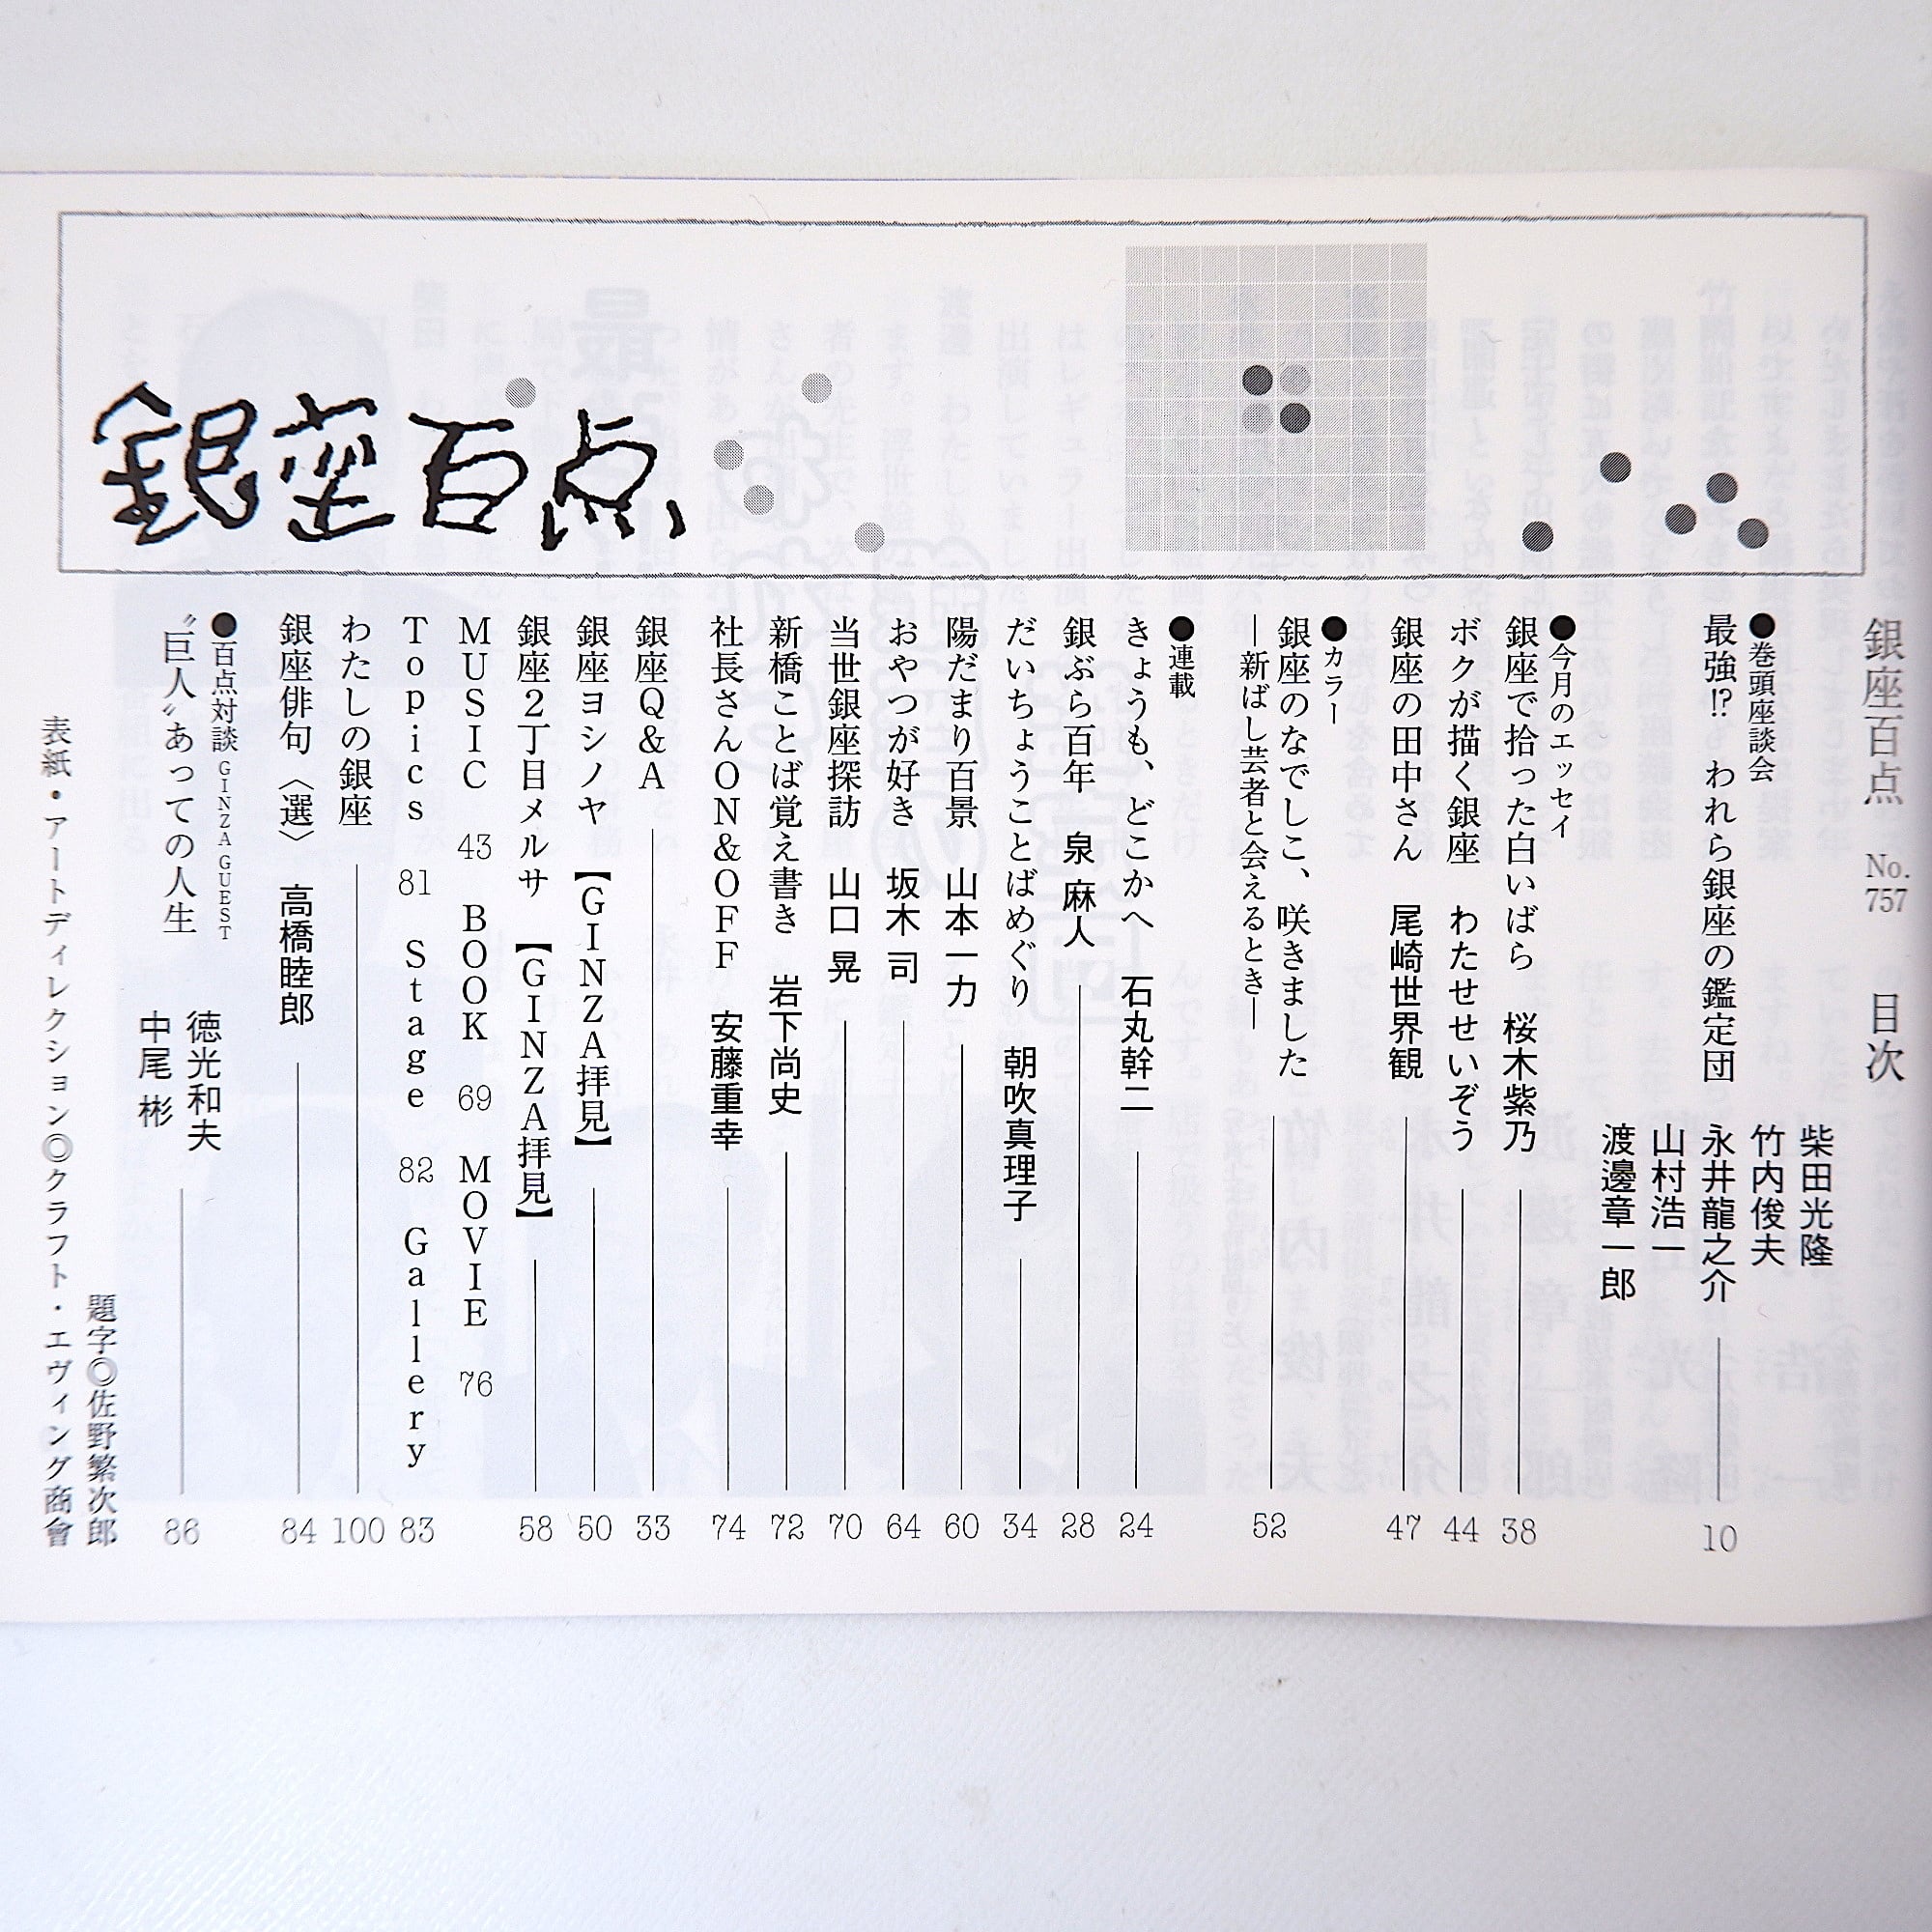 銀座百点
銀座百点 No.757 目次
●巻頭座談会
最強!? われら銀座の鑑定団
柴田光隆
竹内俊夫
永井龍之介
山村浩一
渡邊章一郎
10
●今月のエッセイ
銀座で拾った白いばら 桜木紫乃 38
ボクが描く銀座 わたせせいぞう 44
銀座の田中さん 尾崎世界観 47
●カラー
銀座のなでしこ、咲きました
―新ばし芸者と会えるとき―
52
●連載
きょうも、どこかへ 石丸幹二 24
銀ぶら百年 泉 麻人 28
だいちょうことばめぐり 朝吹真理子 34
陽だまり百景 山本一力 60
おやつが好き 坂木 司 64
当世銀座探訪 山口 晃 70
新橋ことば覚え書き 岩下尚史 72
社長さんON&OFF 安藤重幸 74
銀座Q&A 33
銀座ヨシノヤ【GINZA拝見】 50
銀座2丁目メルサ【GINZA拝見】 58
MUSIC 43 BOOK 69 MOVIE 76
Topics 81 Stage 82 Gallery 83
わたしの銀座 100
銀座俳句〈選〉 高橋睦郎 84
●百点対談 GINZA GUEST
〝巨人〟あっての人生
徳光和夫
中尾 彬
86
題字◎佐野繁次郎
表紙・アートディレクション◎クラフト・エヴィング商會